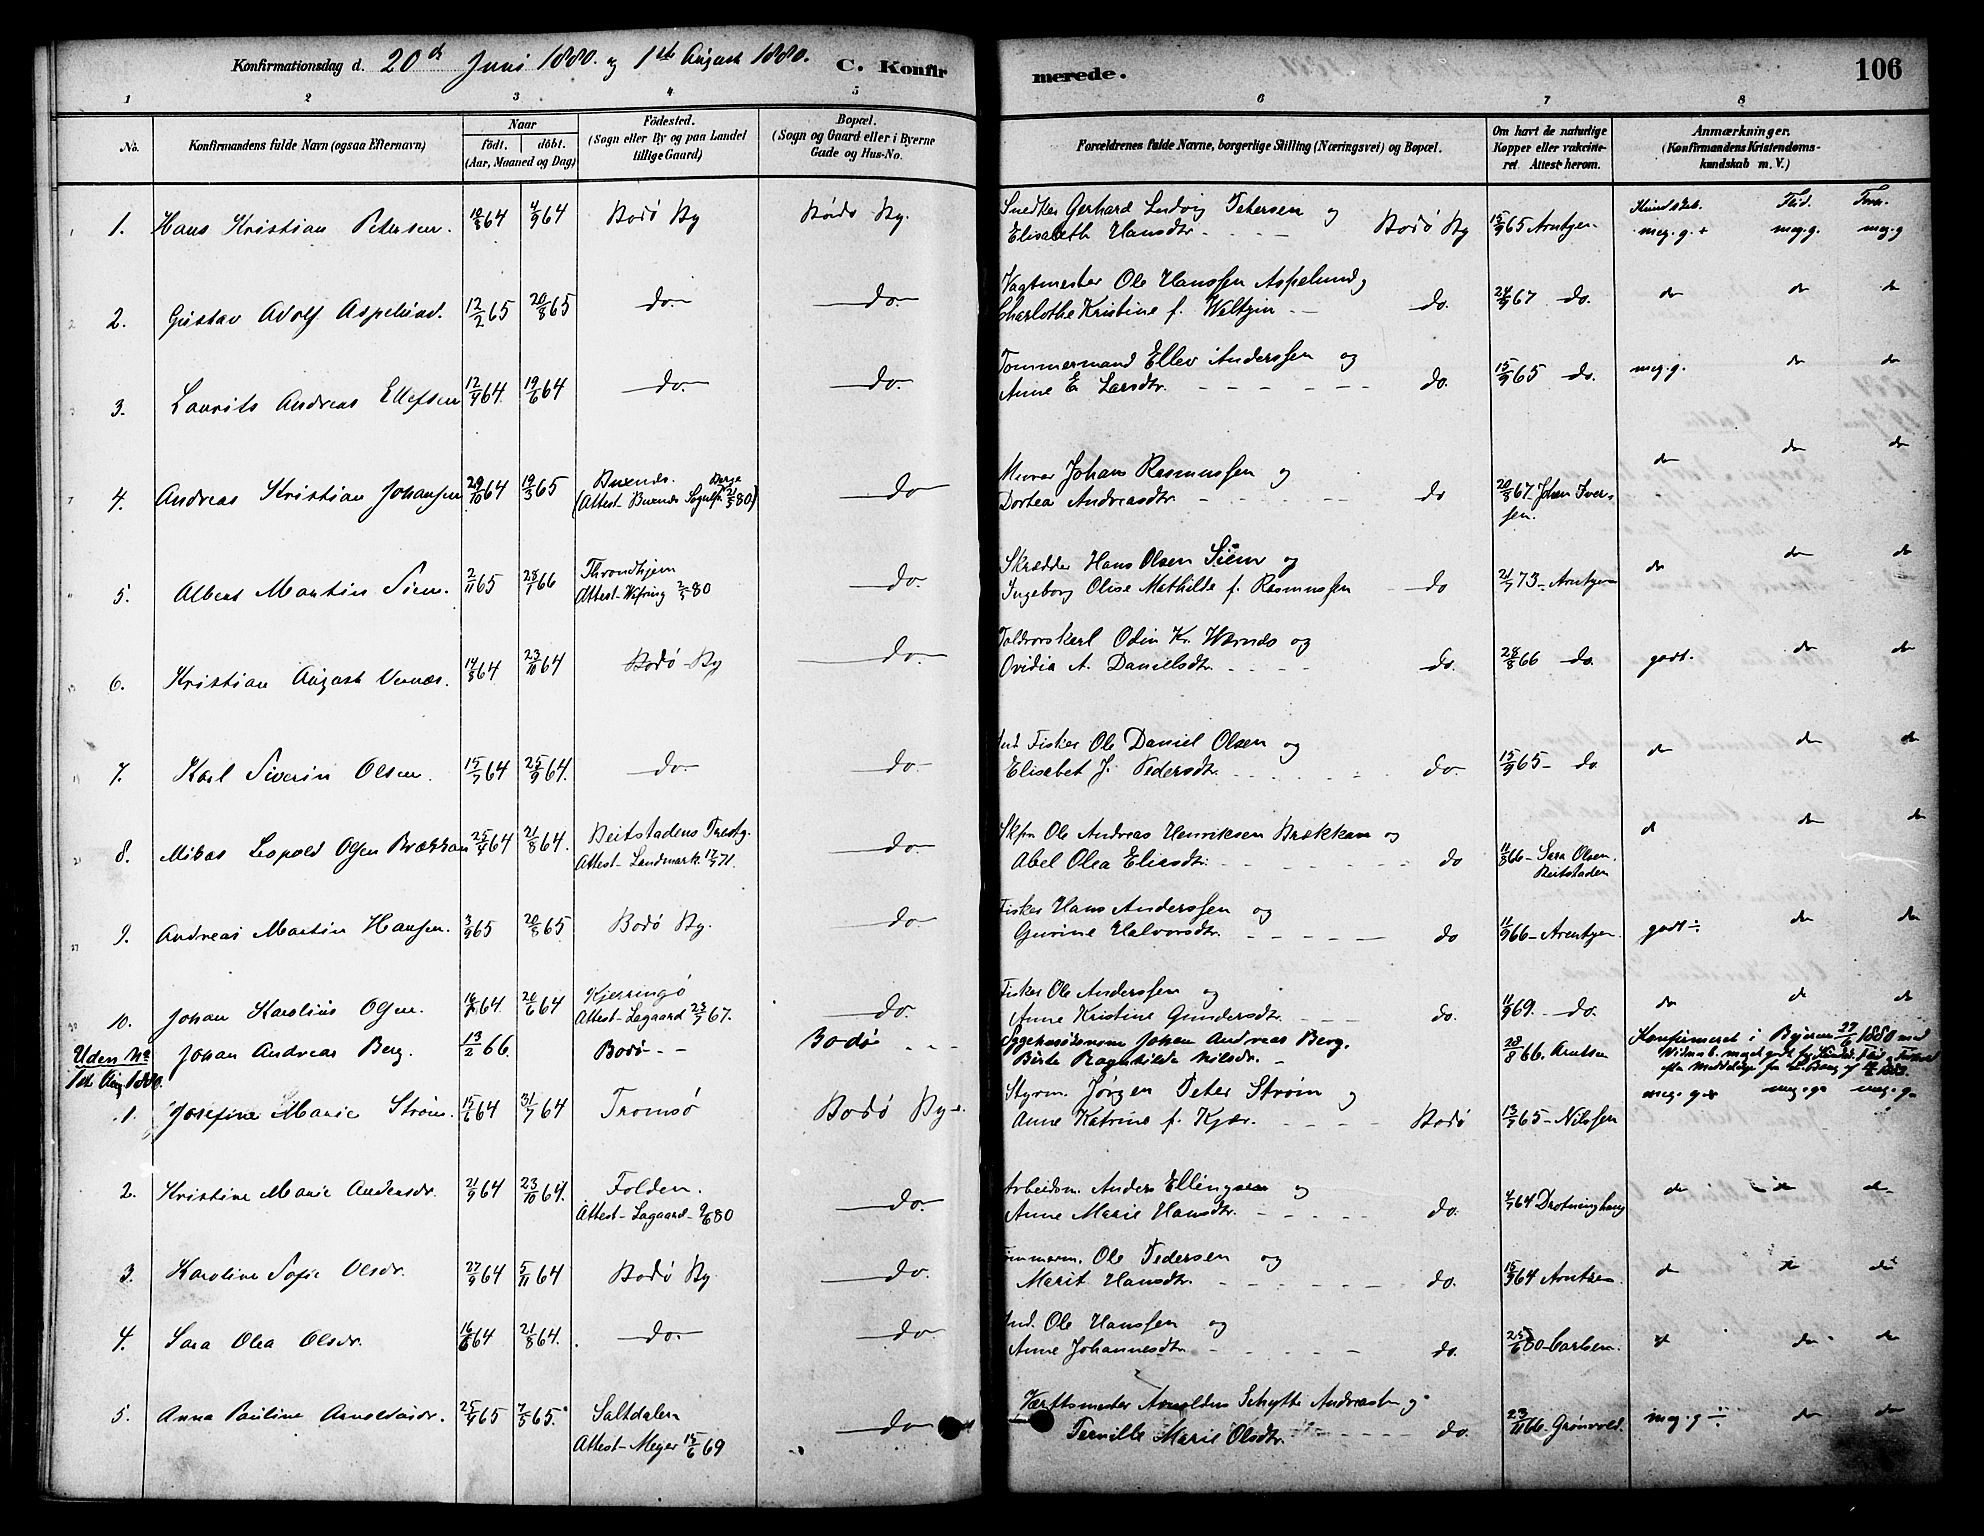 Konfirmationsdag d. 20de Juni 1880. og 1ste August 1880.
C. Konfirmerede.
106
1 2 3 4 5 6 7 8
No.
Konfirmandens fulde Navn (ogsaa Efternavn)
Naar
födt. döbt.
(Aar, Maaned og Dag)
Födested.
(Sogn eller By og paa Landet
tillige Gaard)
Bopæl.
(Sogn og Gaard eller i Byerne
Gade og Hus-No.
Forældrenes fulde Navne, borgerlige Stilling (Næringsvei) og Bopæl.
Om havt de naturlige
Kopper eller vakcine-
ret Attest herom.
Anmærkninger.
(Konfirmandens Kristendoms-
kundskab m. V.)
Kundskab. Flid.
1. Hans Kristian Petersen. 19/8 64 4/9 64 Bodø By Bodø By. Snedker Gerhard Ludvig Petersen og
Elisabeth Hansdtr. Bodø By 15/9 65 Arntzen meg. g. + meg. g. meg. g
2. Gustav Adolf Aspelund. 12/2 65 20/8 65 do. do. Vagtmester Ole Hanssen Aspelund og
Charlothe Kristine f. Weltzin do. 24/9 67 do. do do do
3. Laurits Andreas Ellefsen 12/4 64 19/6 64 do. do. Tømmermand Ellev Anderssen og
Anne E. Larsdtr. do. 15/9 65 do. meg. g. do do
4. Andreas Kristian Johansen 29/10 64 19/3 65 Buxnes. do Murer Johans Rasmussen og
(Attest Buxnes Sognepr. Berge 21/5 80) Dortea Andreasdtr. do 20/8 67 Johan Iver-
sen. do do do
5. Albert Martin Siem. 2/11 65 28/1 66 Throndhjem do Skrædder Hans Olsen Siem og
Attest 2/5 80 Ingeborg Olise Mathilde f. Rasmussen do 21/7 73 Arntzen do do do
6. Kristian August Vernæs. 14/8 64 23/10 64 Bodø By do. Toldrorskarl Odin Kr. Wærnes og
Ovidia A. Danielsdtr. do. 28/8 66 do. godt. do do
7. Karl Siverin Olsen. 15/7 64 25/9 64. do. do. Ind. Fisker Ole Daniel Olsen og
Elisabet J. Pedersdtr. do. 15/9 65 do do do do
8. Mikas Leopold Olsen Brækkan 25/4 64 21/8 64. Beitstadens Prestg. do. Skpr. Ole Andreas Henriksen Brækkan og
Attest Landmark 17/7 71. Abel Olea Eliasdtr. do 11/8 66 Sara Olsen.
Beitstaden do do
9. Andreas Martin Hansen. 3/4 65 20/8 65 Bodø By. do. Fisker Hans Anderssen og
Gurine Halvorsdtr. do 11/9 66 Arentzen. godt ÷ do do
10. Johan Karolius Olsen. 64 20/6 64 Kjerringø do. Fisker Ole Anderssen og
Attest Lagaard 23/7 67. Anne Kristine Gundersdtr. do. 11/9 69. do. do do do
Uden No Johan Andreas Berg. 13/2 66 Bodø Bodø Sygehusökonom Johan Andreas Berg.
Birte Ragnhilda Nilsdr. 28/8 66. Arntsen Konfirmeret i Byrum 27/6 1880 med
1ste Aug 1880.
1. Josefine Marie Strøm. 15/6 64 31/7 64 Tromsø Bodø By. Styrm. Jørgen Peter Strøm og
Anne Katrine f. Kjær. Bodø 13/7 65 Nilssen meg. g. + meg. g. meg. g.
2. Kristine Marie Andersdr. 21/9 64 23/10 64. Folden. do. Arbeidsm. Anders Ellingsen og
Attest Lagaard 9/6 80 Anne Marie Hansdtr. do. 4/7 64 Drotninghaug do do do
3. Karoline Sofie Olsdr. 27/9 64 5/11 64 Bodø By do. Tømmerm. Ole Pedersen og
Marit Hansdtr. do. 15/9 64 Arntzen. do do do
4. Sara Olea Olsdr. 16/6 64 21/8 64. do. do Ind. Ole Hanssen og
Anne Johannesdtr. do. 25/6 80 Carlsen. do do do
5. Anna Pauline Arnoldusdr. 25/4 65 7/5 65. Saltdalen do Værftsmester Arnoldus Schytte Andreassen og
Attest Meyer 15/6 69 Pernille Marie Olsdtr. do. 23/11 66. Grønvold. meg. g ÷ do do